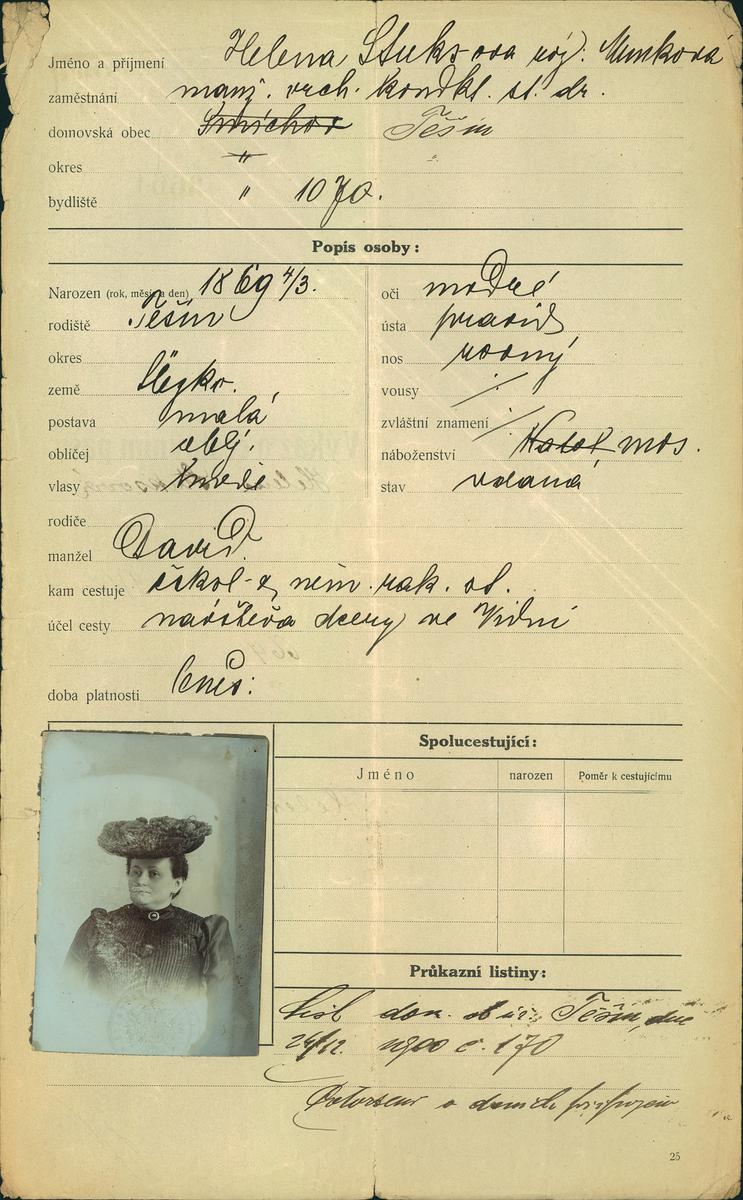 Jméno a příjmení Helena Stuksova roz. Munková
zaměstnání manž. vrch. kondkt. st. dr.
domovská obec Smíchov Těšín
okres "
bydliště " 1070.
Popis osoby:
Narozen (rok, měsíc a den) 1869 4/3.
rodiště Těšín
okres
země Slézko.
postava malá
obličej oblý.
vlasy hnědé
oči modré
ústa pravid.
nos rovný
vousy /
zvláštní znamení /
náboženství Katol. mos.
stav vdaná
rodiče
manžel David.
kam cestuje čskol-z, něm. rak. st.
účel cesty návštěva dcery ve Vídni
doba platnosti
Spolucestující:
Jméno narozen Poměr k cestujícímu
Průkazní listiny:
List dom. Těšín, dne
24/12. 1900 č. 170
Potvrzení o daních připojeno
25